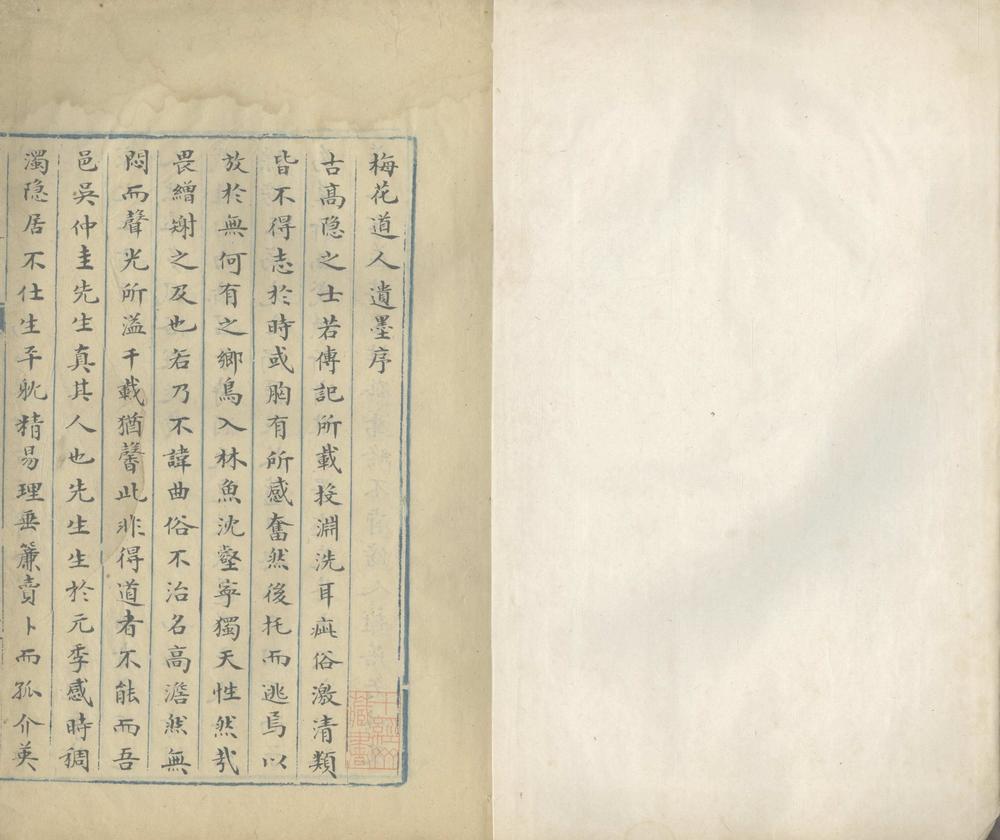 梅花道人遺墨序
古高隐之士若傳記所載投淵洗耳疵俗激清類
皆不得志於時或胸有所感奮然後托而逃焉以
放於無何有之鄉鳥入林魚沈壑寜獨天性然㢤
畏繒矰之及也若乃不諱曲俗不治名高澹然無
悶而聲光所溢千載猶馨此非得道者不能而吾
邑吳仲圭先生真其人也先生生於元季感時稠
濁隐居不仕生平躭精易理垂簾賣卜而孤介英